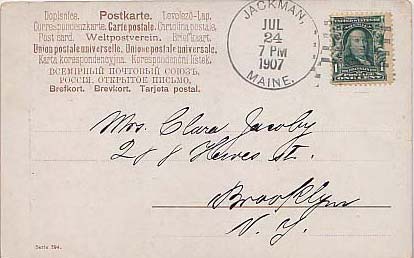 Dopisnica. Postkarte. Levelező-Lap.
Correspondenzkarte. Carte postale. Cartolina postale.
Post card. Weltpostverein. Briefkaart.
Union postale universelle. Unione postale universale.
Karta korespondencyjna. Korespondenční lístek.
ВСЕМІРНЫЙ ПОЧТОВЫЙ СОЮЗЪ.
РОССІЯ. ОТКРЫТОЕ ПИСЬМО.
Brefkort. Brevkort. Tarjeta postal.
JACKMAN,
JUL
24
7 PM
1907
MAINE.
ONE CENT
Mrs. Clara Jacoby
288 Hewes St.
Brooklyn
N. Y.
Serie 394.